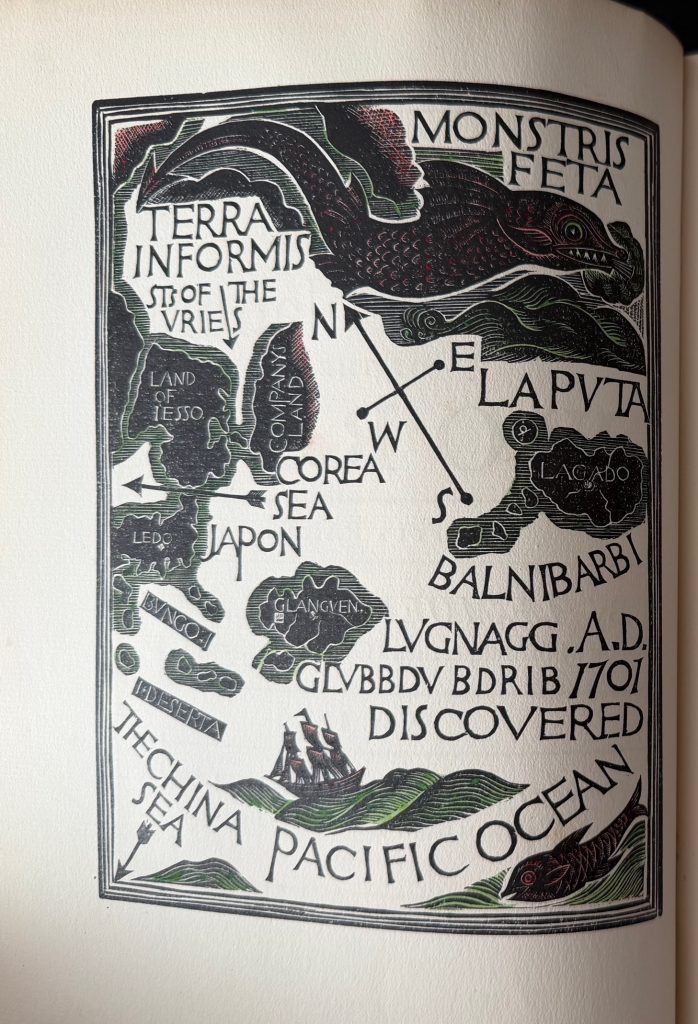 MONSTRIS
FETA
TERRA
INFORMIS
STS OF THE
VRIES
N
E
W
S
LAND
OF
IESSO
COMPANYS
LAND
LAPVTA
LAGADO
COREA
SEA
LEDO
JAPON
BALNIBARBI
BVNGO.I
GLANGVEN.
LVGNAGG.A.D.
GLVBBDVBDRIB 1701
DISCOVERED
I.DESERTA
THE CHINA
SEA
PACIFIC OCEAN